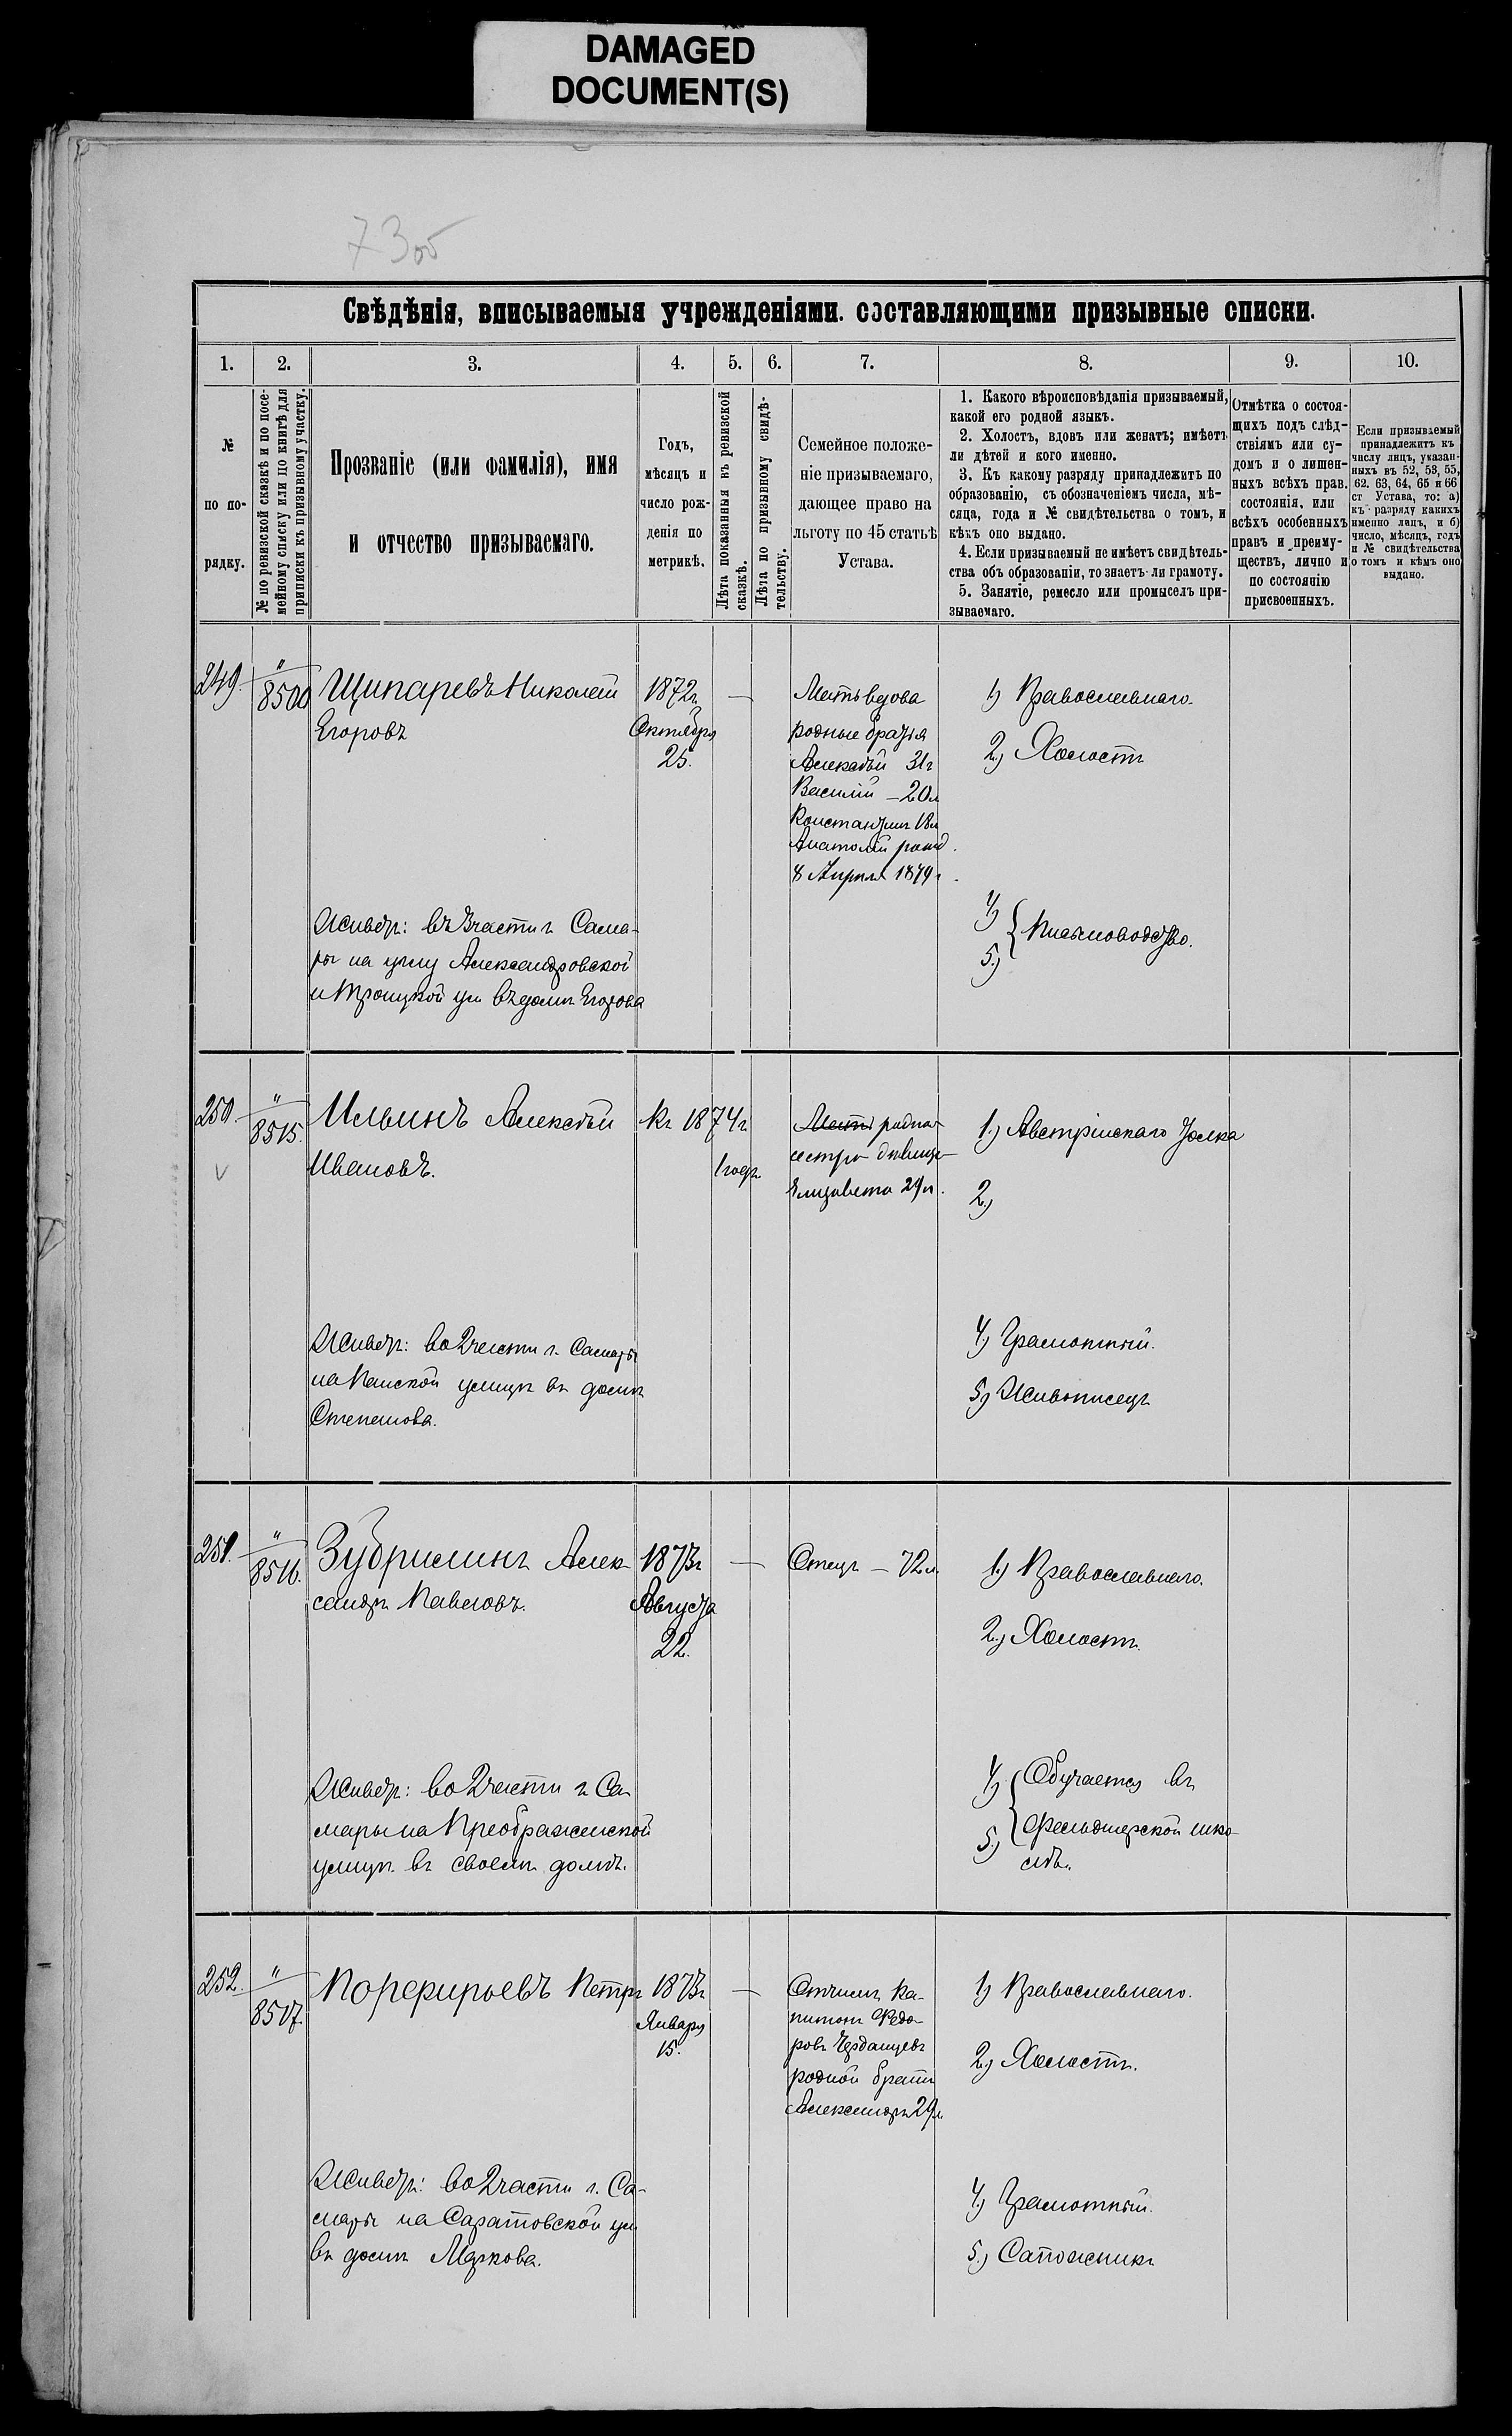 DAMAGED
DOCUMENT(S)
73 об
Свѣдѣнія, вписываемыя учрежденіями. составляющими призывные списки.
1. 2. 3. 4. 5. 6. 7. 8. 9. 10.
№
по по-
рядку.
№ по ревизской сказкѣ и по посе-
мейному списку или по книгѣ для
приписки къ призывному участку.
Прозваніе (или фамилія), имя
и отчество призываемаго.
Годъ,
мѣсяцъ и
число рож-
денія по
метрикѣ.
Лѣта показанныя въ ревизской
сказкѣ.
Лѣта по призывному свидѣ-
тельству.
Семейное положе-
ніе призываемаго,
дающее право на
льготу по 45 статьѣ
Устава.
1. Какого вѣроисповѣданія призываемый,
какой его родной языкъ.
2. Холостъ, вдовъ или женатъ; имѣетъ
ли дѣтей и кого именно.
3. Къ какому разряду принадлежить по
образованію, съ обозначеніемъ числа, мѣ-
сяца, года и № свидѣтельства о томъ, и
кѣмъ оно выдано.
4. Если призываемый не имѣетъ свидѣтель-
ства объ образованіи, то знаетъ ли грамоту.
5. Занятіе, ремесло или промыселъ при-
зываемаго.
Отмѣтка о состоя-
щихъ подъ слѣд-
ствіямъ или су-
домъ и о лишен-
ныхъ всѣхъ прав.
состоянія, или
всѣхъ особенныхъ
правъ и преиму-
ществъ, лично и
по состоянію
присвоенныхъ.
Если призываемый
принадлежитъ къ
числу лицъ, указан-
ныхъ въ 52, 53, 55,
62. 63, 64, 65 и 66
ст Устава, то: а)
къ разряду какихъ
именно лицъ, и б)
число, мѣсяцъ, годъ
и № свидѣтельства
о томъ и кѣмъ оно
выдано.
249.
"
8500
Щипаревъ Николай
Егоровъ
1872г
Октября
25.
—
Мать вдова
родные братья
Алексѣй 31г
Василій – 20л
Константинъ 18л
Анатолій рожд.
8 Апрѣля 1879г.
1) Православнаго.
2) Холостъ
4)
5)
Письмоводство.
Живетъ: въ 3 части г. Сама-
ры на углу Александровской
и Троицкой ул въ домѣ Егорова
250.
"
8515.
Ильинъ Алексѣй
Ивановъ.
Къ 1874г
1 годъ
Мать родная
сестра дѣвица
Елизавета 29л.
1) Австрійскаго толка
2)
Живетъ: во 2 части г. Самары
на Панской улицѣ въ домѣ
Степанова.
4) Грамотный.
5) Живописецъ
251.
"
8516.
Зубрилинъ Алек-
сандръ Павловъ.
1873г
Августа
22.
—
Отецъ – 72л
1) Православнаго.
2) Холостъ.
Живетъ: во 2 части г Са-
мары на Преображенской
улицѣ въ своемъ домѣ.
4)
5)
Обучается въ
фельдшерской шко-
лѣ.
252.
"
8517.
Порфирьевъ Петръ
1873г
Января
15.
—
Отчимъ Ка-
питонъ Федо-
ровъ Чердацевъ
родной братъ
Александръ 29л
1) Православнаго.
2) Холостъ.
Живетъ: во 2 части г. Са-
мары на Саратовской ул
въ домѣ Маркова.
4) Грамотный.
5) Сапожникъ